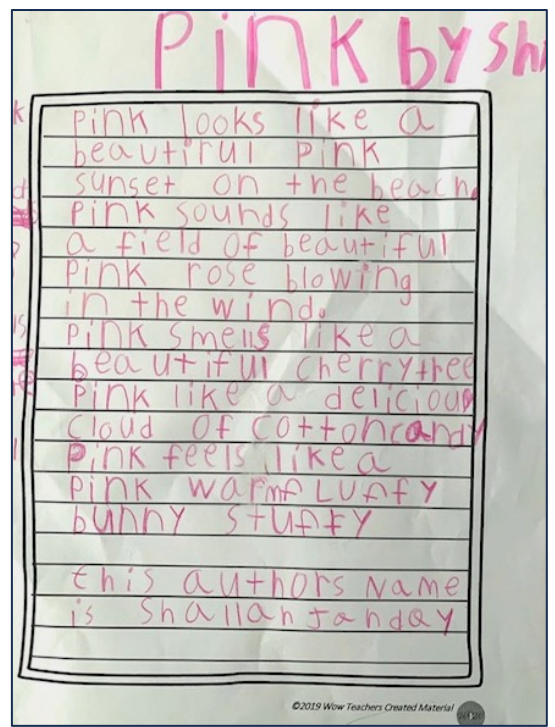 Pink by Sh
Pink looks like a
beautiful pink
sunset on the beach.
Pink sounds like
a field of beautiful
Pink rose blowing
in the wind.
Pink smells like a
beautiful cherrytree
Pink like a delicious
cloud of cottoncandy
Pink feels like a
Pink warm fLuffy
bunny stuffy
this authors Name
is Shallah Janday
©2019 Wow Teachers Created Material